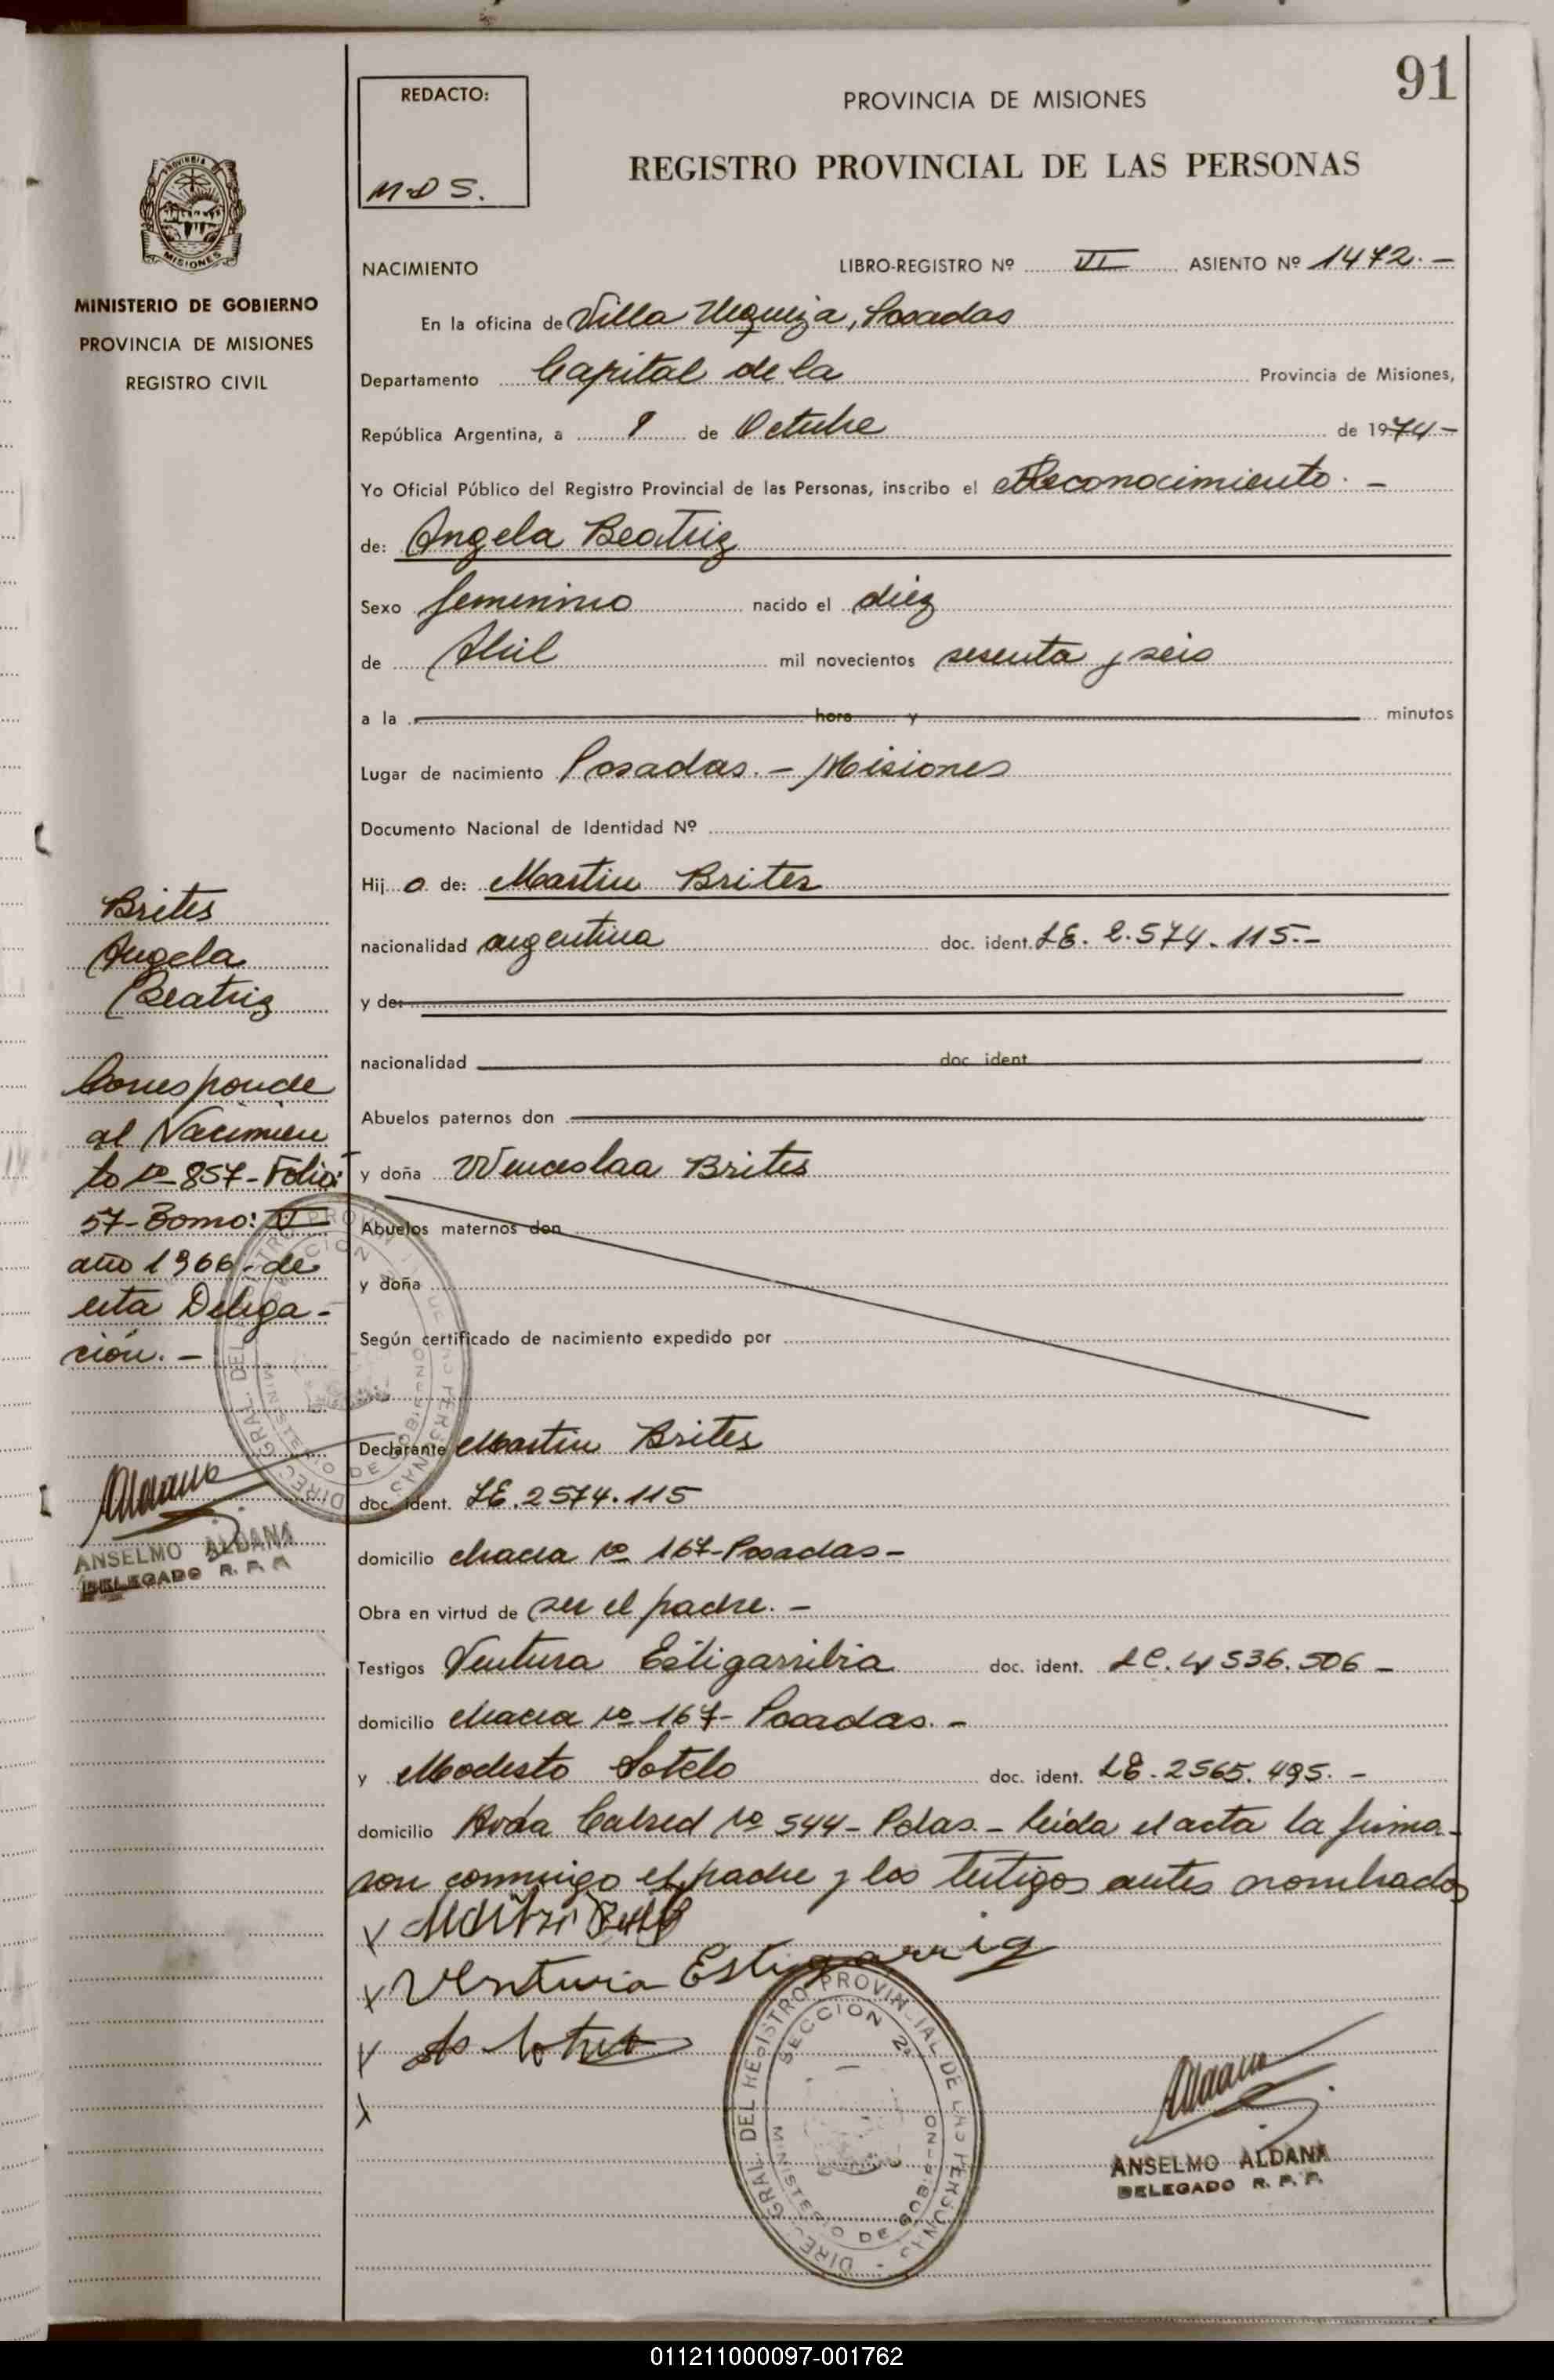 91
REDACTO:
M-D S.
PROVINCIA DE MISIONES
REGISTRO PROVINCIAL DE LAS PERSONAS
PROVINCIA
MISIONES
MINISTERIO DE GOBIERNO
PROVINCIA DE MISIONES
REGISTRO CIVIL
NACIMIENTO LIBRO-REGISTRO Nº VI ASIENTO Nº 1472.-
En la oficina de Villa Urquiza, Posadas
Departamento Capital de la Provincia de Misiones,
República Argentina, a de Octubre de 1974-
Yo Oficial Público del Registro Provincial de las Personas, inscribo el Reconocimiento.-
de: Angela Beatriz
Sexo femenino nacido el diez
de Abril mil novecientos sesenta y seis
a la hora y minutos
Lugar de nacimiento Posadas.- Misiones
Documento Nacional de Identidad Nº
Hij a de: Martin Brites
nacionalidad argentina doc. ident. LE. 2.574.115.-
y de:
nacionalidad doc. ident
Abuelos paternos don
y doña Wenceslaa Brites
Abuelos maternos don
y doña
Según certificado de nacimiento expedido por
Declarante Martin Brites
doc. ident. LE.2574.115
domicilio chacra Nº 167-Posadas-
Obra en virtud de ser el padre.-
Testigos Ventura Estigarribia doc. ident. LE.4536.506-
domicilio chacra Nº 167- Posadas.-
y Modesto Sotelo doc. ident. LE.2565.495.-
domicilio Avda Cabred Nº 544- Pdas.- leída el acta la firma-
ron conmigo el padre y los testigos antes nombrados
Brites
Angela
Beatriz
Corresponde
al Nacimien
to Nº 857-Folio:
57-Tomo:
año 1966-de
esta Delega-
ción.-
Aldana
ANSELMO ALDANA
DELEGADO R. P. P.
Ventura Estigarria
DIREC. GRAL. DEL REGISTRO PROVINCIAL DE LAS PERSONAS
SECCION 2ª
MINISTERIO DE GOBIERNO
Aldana
ANSELMO ALDANA
DELEGADO R. P. P.
011211000097-001762